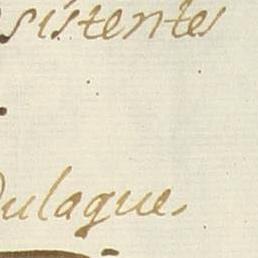 sistentes
Dulaque.